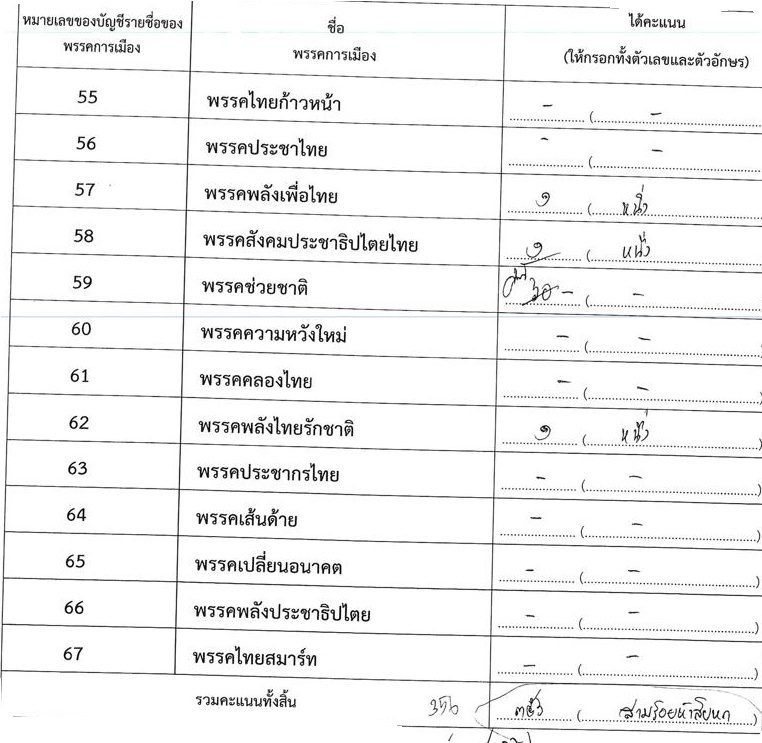 หมายเลขของบัญชีรายชื่อของพรรคการเมือง ชื่อพรรคการเมือง ได้คะแนน (ให้กรอกทั้งตัวเลขและตัวอักษร)
55 พรรคไทยก้าวหน้า - ( -
56 พรรคประชาไทย - ( -
57 พรรคพลังเพื่อไทย ๑ ( หนึ่ง
58 พรรคสังคมประชาธิปไตยไทย ๑ ( หนึ่ง
59 พรรคช่วยชาติ - ( -
60 พรรคความหวังใหม่ - ( - )
61 พรรคคลองไทย - ( - )
62 พรรคพลังไทยรักชาติ ๑ ( หนึ่ง )
63 พรรคประชากรไทย - ( - )
64 พรรคเส้นด้าย - ( - )
65 พรรคเปลี่ยนอนาคต - ( - )
66 พรรคพลังประชาธิปไตย - ( - )
67 พรรคไทยสมาร์ท - ( - )
รวมคะแนนทั้งสิ้น 356 ๓๕๖ ( สามร้อยห้าสิบหก )